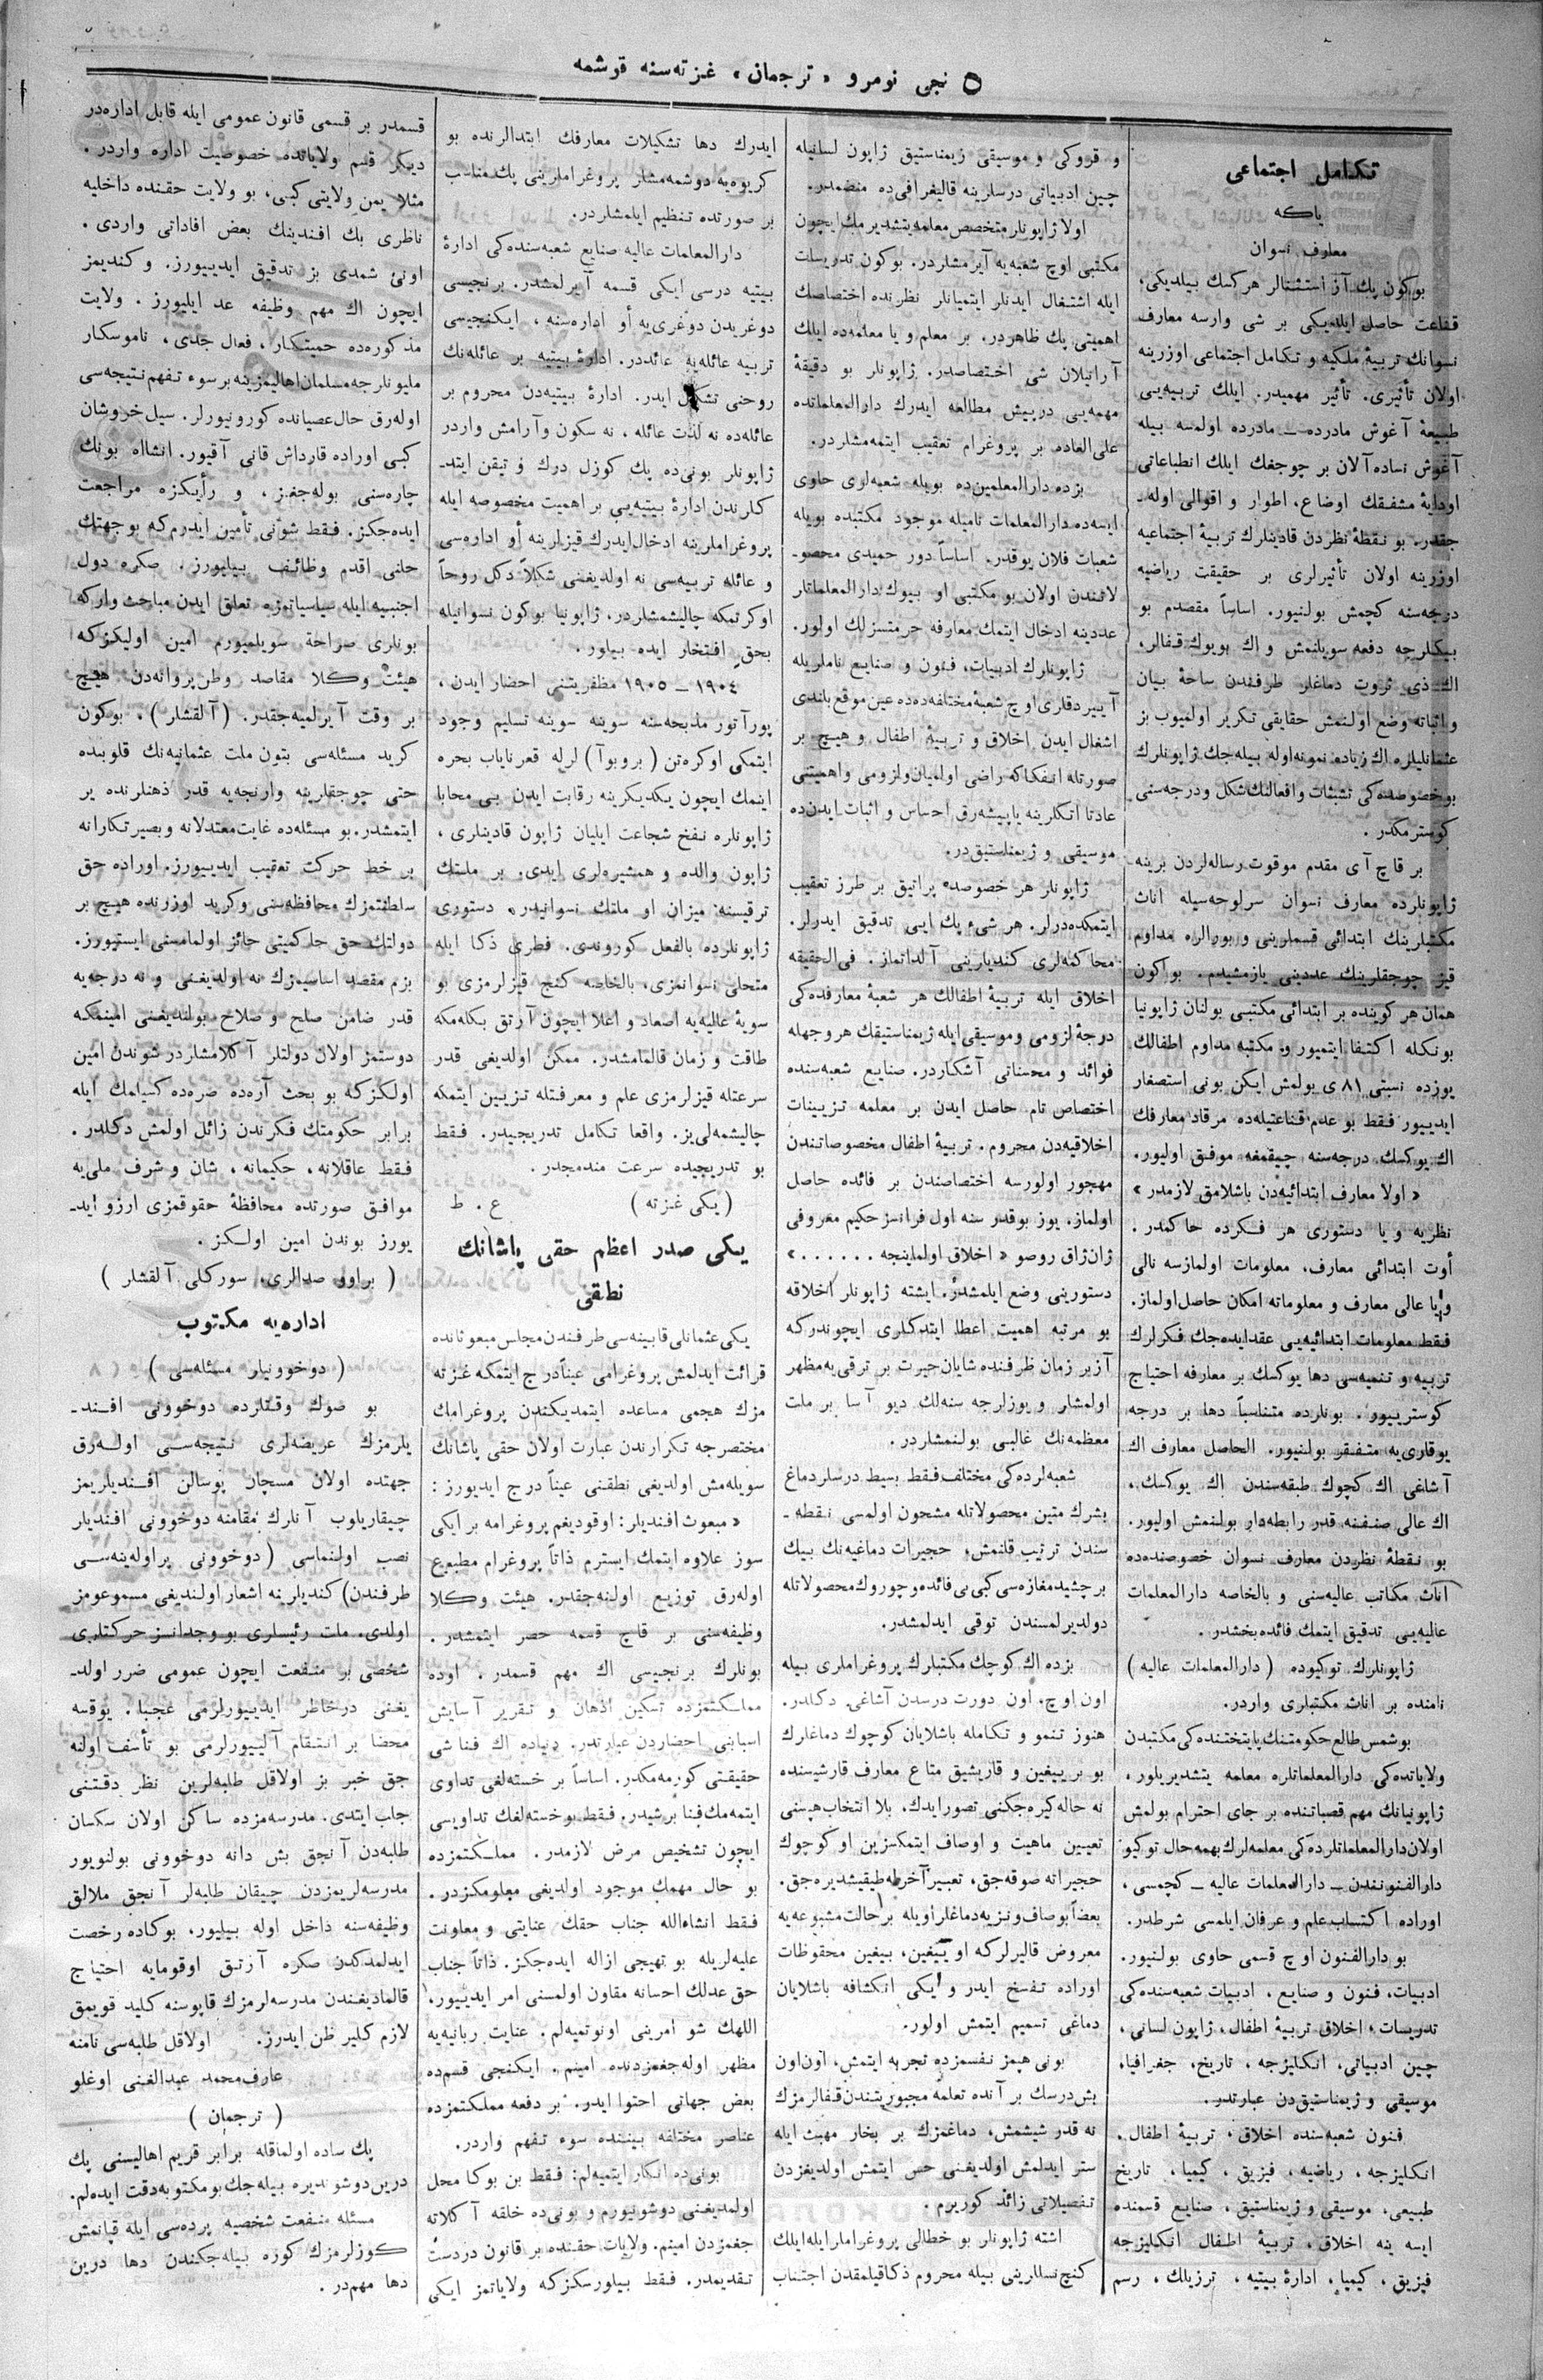 ۵ نجی نومرو «ترجمان» غزته‌سنه قوشمه
تكامل اجتماعی
یاكه
معارف نسوان
بوكون پك آز استثنالر هركسك بیلدیكی،
قناعت حاصل ایلدیكی بر شی وارسه معارف
نسوانك تربیۀ ملكیه و تكامل اجتماعی اوزرینه
اولان تأثیری. تأثیر مهمیدر. ایلك تربیه‌یی
طبیعۀ آغوش مادرده — مادرده اولمسه بیله
آغوش نساده آلان بر چوجغك ایلك انطباعاتی
اودایۀ مشفقك اوضاع، اطوار و اقوالی اوله‌ـ
جقدر. بو نقطۀ نظردن قادینلرك تربیۀ اجتماعیه
اوزرینه اولان تأثیرلری بر حقیقت ریاضیه
درجه‌سنه كچمش بولنیور. اساساً مقصدم بو
بیكلرجه دفعه سویلنمش و اك بویوك قفالر،
اك ذی ثروت دماغلر طرفندن ساحۀ بیان
و اثباته وضع اولنمش حقایقی تكریر اولمیوب بز
عثمانلیلره اك زیاده نمونه اوله بیله‌جك ژاپونلرك
بو خصوصده‌كی تشبثات و افعالنك شكل و درجه‌سنی
كوسترمكدر.
بر قاچ آی مقدم موقوت رساله‌لردن برینه
ژاپونلرده معارف نسوان سرلوحه‌سیله اناث
مكتبلرینك ابتدائی قسملرینی و بورالره مداوم
قیز چوجقلرینك عددینی یازمشیدم. بوكون
همان هر كوینده بر ابتدائی مكتبی بولنان ژاپونیا
بونكله اكتفا ایتمیور و مكتبه مداوم اطفالك
یوزده نسبتی ۸۱ ی بولمش ایكن بونی استصغار
ایدییور فقط بو عدم قناعتیله‌ده مرقاد معارفك
اك یوكسك درجه‌سنه چیقمغه موفق اولیور.
« اولا معارف ابتدائیه‌دن باشلامق لازمدر »
نظریه و یا دستوری هر فكرده حاكمدر.
أوت ابتدائی معارف، معلومات اولمازسه تالی
و یا عالی معارف و معلوماته امكان حاصل اولماز.
فقط معلومات ابتدائیه‌یی عقد ایده‌جك فكرلرك
تربیه و تنمیه‌سی دها یوكسك بر معارفه احتیاج
كوستریيور. بونلرده متناسباً دها بر درجه
یوقاری‌یه متفقر بولنیور. الحاصل معارف اك
آشاغی اك كچوك طبقه‌سندن اك یوكسك،
اك عالی صنفنه قدر رابطه‌دار بولنمش اولیور.
بو نقطۀ نظردن معارف نسوان خصوصنده‌ده
اناث مكاتب عالیه‌سنی و بالخاصه دارالمعلمات
عالیه‌یی تدقیق ایتمك فائده بخشدر.
ژاپونلرك توكیوده (دارالمعلمات عالیه)
نامنده بر اناث مكتبلری واردر.
بو شمس طالع حكومتنك پایتختنده‌كی مكتبدن
ولایاتده‌كی دارالمعلماتلره معلمه یتشدیریلور،
ژاپونیانك مهم قصباتنده بر جای احترام بولمش
اولان دارالمعلماتلرده‌كی معلمه‌لرك بهمه حال توكیو
دارالفنونندن — دارالمعلمات عالیه — كچمسی،
اوراده اكتساب علم و عرفان ایلمسی شرطدر.
بو دارالفنون اوچ قسمی حاوی بولنیور.
ادبیات، فنون و صنایع، ادبیات شعبه‌سنده‌كی
تدریسات، اخلاق تربیۀ اطفال، ژاپون لسانی،
چین ادبیاتی، انكلیزجه، تاریخ، جغرافیا،
موسیقی و ژیمناستیق‌دن عبارتدر.
فنون شعبه‌سنده اخلاق، تربیۀ اطفال،
انكلیزجه، ریاضیه، فیزیق، كیمیا، تاریخ
طبیعی، موسیقی و ژیمناستیق، صنایع قسمنده
ایسه ینه اخلاق، تربیۀ اطفال انكلیزجه
فیزیق، كیمیا، ادارۀ بیتیه، ترزیلك، رسم
و قروكی و موسیقی ژیمناستیق ژاپون لسانیله
چین ادبیاتی درسلرینه قالیغرافی‌ده منضمدر.
اولا ژاپونلر متخصص معلمه یتشدیرمك ایچون
مكتبی اوچ شعبه‌یه آیرمشلردر. بوكون تدریسات
ایله اشتغال ایدنلر ایتمیانلر نظرنده اختصاصك
اهمیتی پك ظاهردر، بر معلم و یا معلمه‌ده ایلك
آرانیلان شی اختصاصدر. ژاپونلر بو دقیقۀ
مهمه‌یی درپیش مطالعه ایدرك دارالمعلماتده
علی‌العاده بر پروغرام تعقیب ایتمه‌مشلردر.
بزده دارالمعلمین‌ده بویله شعبه‌لری حاوی
ایسه‌ده دارالمعلمات نامیله موجود مكتبده بویله
شعبات فلان یوقدر. اساساً دور حمیدی محصوـ
لاتندن اولان بو مكتبی او بیوك دارالمعلماتلر
عددینه ادخال ایتمك معارفه حرمتسزلك اولور.
ژاپونلرك ادبیات، فنون و صنایع ناملریله
آییردقلری اوچ شعبۀ مختلفه‌ده‌ده عین موقع بلندی
اشغال ایدن اخلاق و تربیۀ اطفال و هیچ بر
صورتله انفكاكه راضی اولمیان و لزومی و اهمیتنی
عادتا اتكلرینه یاپیشه‌رق احساس و اثبات ایدن‌ده
موسیقی و ژیمناستیق‌در.
ژاپونلر هر خصوصده پراتیق بر طرز تعقیب
ایتمكده‌درلر. هر شیء پك ایی تدقیق ایدرلر.
محاكمه‌لری كندیلرینی آلداتماز. فی‌الحقیقه
اخلاق ایله تربیۀ اطفالك هر شعبۀ معارفده‌كی
درجۀ لزومی و موسیقی ایله ژیمناستیقك هر وجهله
فوائد و محسناتی آشكاردر. صنایع شعبه‌سنده
اختصاص تام حاصل ایدن بر معلمه تزیینات
اخلاقیه‌دن محروم، تربیۀ اطفال مخصوصاتندن
مهجور اولورسه اختصاصندن بر فائده حاصل
اولماز، یوز بوقدر سنه اول فرانسز حكیم معروفی
ژان‌ژاق روصو « اخلاق اولماینجه . . . . . . »
دستورینی وضع ایلمشدر. ایشته ژاپونلر اخلاقه
بو مرتبه اهمیت اعطا ایتدكلری ایچوندركه
آز بر زمان ظرفنده شایان حیرت بر ترقی‌یه مظهر
اولمشلر و یوزلرجه سنه‌لك دیو آسا بر ملت
معظمه‌نك غالبی بولنمشلردر.
شعبه‌لرده‌كی مختلف فقط بسیط درسلر دماغ
بشرك متین محصولاتله مشحون اولمسی نقطه‌ـ
سندن ترتیب قلنمش، حجیرات دماغیه‌نك بیك
بر چشید مغازه‌سی كبی بی فائده و چوروك محصولاتله
دولدیرلمسندن توقی ایدلمشدر.
بزده اك كوچك مكتبلرك پروغراملری بیله
اون اوچ، اون دورت درسدن آشاغی دكلدر.
هنوز تنمو و تكامله باشلایان كوچوك دماغلرك
بو بر ییغین و قاریشیق متاع معارف قارشیسنده
نه حاله كیره‌جكنی تصور ایدك، بلا انتخاب هپسنی
تعیین ماهیت و اوصاف ایتمكسزین او كوچوك
حجیراته صوقه‌جق، تعبیر آخرله طیقیشدیره‌جق.
بعضاً بو صاف و نزیه دماغلر اویله بر حالت مشبوعه‌یه
معروض قالیرلركه او ییغین، ییغین محفوظات
اوراده تفسخ ایدر و ایكی انكشافه باشلایان
دماغی تسمیم ایتمش اولور.
بونی هپمز نفسمزده تجربه ایتمش، اون اون
بش درسك بر آنده تعلمه مجبوریتندن قفالرمزك
نه قدر شیشمش، دماغمزك بر بخار مهبت ایله
ستر ایدلمش اولدیغنی حس ایتمش اولدیغزدن
تفصیلاتی زائد كوریرم.
اشته ژاپونلر بو خطالی پروغراملر ایله ایلك
كنج نسللرینی بیله محروم ذكا قیلمقدن اجتناب
ایدرك دها تشكیلات معارفك ابتدالرنده بو
كریوه‌یه دوشمه‌مشلر پروغراملرینی پك مناسب
بر صورتده تنظیم ایلمشلردر.
دارالمعلمات عالیه صنایع شعبه‌سنده‌كی ادارۀ
بیتیه درسی ایكی قسمه آیرلمشدر. برنجیسی
دوغریدن دوغری‌یه أو اداره‌سنه، ایكنجیسی
تربیه عائله‌یه عائددر. ادارۀ بیتیه بر عائله‌نك
روحنی تشكیل ایدر. ادارۀ بیتیه‌دن محروم بر
عائله‌ده نه لذت عائله، نه سكون و آرامش واردر
ژاپونلر بونی‌ده پك كوزل درك و تیقن ایتدـ
كلرندن ادارۀ بیتیه‌یی بر اهمیت مخصوصه ایله
پروغراملرینه ادخال ایدرك قیزلرینه أو اداره‌سی
و عائله تربیه‌سی نه اولدیغنی شكلاً دكل روحاً
اوكرتمكه چالیشمشلردر، ژاپونیا بوكون نسوانیله
بحق افتخار ایده بیلور.
۱۹۰۴ — ۱۹۰۵ مظفریتنی احضار ایدن،
پورآتور مذبحه‌سنه سوینه سوینه تسلیم وجود
ایتمكی اوكرتن (بروبوآ) لرله قعر نایاب بحره
اینمك ایچون یكدیكرینه رقابت ایدن بی محابا
ژاپونلره نفخ شجاعت ایلیان ژاپون قادینلری،
ژاپون والده و همشیره‌لری ایدی. بر ملتك
ترقیسنه میزان او ملتك نسوانیدر، دستوری
ژاپونلرده بالفعل كوروندی. فطری ذكا ایله
متحلی نسوانمزی، بالخاصه كنج قیزلرمزی بو
سویۀ عالیه‌یه اصعاد و اعلا ایچون آرتق بكله‌مكه
طاقت و زمان قالمامشدر. ممكن اولدیغی قدر
سرعتله قیزلرمزی علم و معرفتله تزیین ایتمكه
چالیشمه‌لی‌یز. واقعا تكامل تدریجیدر. فقط
بو تدریجیده سرعت مندمجدر.
(یكی غزته) ع. ط
یكی صدر اعظم حقی پاشانك
نطقی
یكی عثمانلی قابینه‌سی طرفندن مجلس مبعوثانده
قرائت ایدلمش پروغرامی عیناً درج ایتمكه غزته
مزك هجمی مساعده ایتمدیكندن پروغرامك
مختصرجه تكرارندن عبارت اولان حقی پاشانك
سویله‌مش اولدیغی نطقنی عیناً درج ایدیورز:
« مبعوث افندیلر: اوقودیغم پروغرامه بر ایكی
سوز علاوه ایتمك ایسترم ذاتاً پروغرام مطبوع
اوله‌رق توزیع اولنه‌جقدر. هیئت وكلا
وظیفه‌سنی بر قاچ قسمه حصر ایتمشدر.
بونلرك برنجیسی اك مهم قسمدر. اوده
مملكتمزده تسكین اذهان و تقریر آسایش
اسبابنی احضاردن عبارتدر. دنیاده اك فنا شی
حقیقتی كورمه‌مكدر. اساساً بر خسته‌لغی تداوی
ایتمه‌مك فنا برشیدر. فقط بو خسته‌لغك تداویسی
ایچون تشخیص مرض لازمدر. مملكتمزده
بو حال مهمك موجود اولدیغی معلومكزدر.
فقط انشاءالله جناب حقك عنایتی و معاونت
علیه‌لریله بو تهیجی ازاله ایده‌جكز. ذاتاً جناب
حق عدلك احسانه مقاون اولمسنی امر ایدییور،
اللهك شو امرینی اونوتمیه‌لم. عنایت ربانیه‌یه
مظهر اوله‌جغمزدنده امینم. ایكنجی قسم‌ده
بعض جهاتی احتوا ایدر. بر دفعه مملكتمزده
عناصر مختلفه بیننده سوء تفهم واردر.
بونی‌ده انكار ایتمیه‌لم: فقط بن بوكا محل
اولمدیغنی دوشونیورم و بونی‌ده خلقه آكلاته
جغمزدن امینم. ولایات حقنده بر قانون دردست
تقدیمدر. فقط بیلورسكزكه ولایاتمز ایكی
قسمدر بر قسمی قانون عمومی ایله قابل اداره‌در
دیكر قسم ولایاتده خصوصیت اداره واردر.
مثلا یمن ولایتی كبی، بو ولایت حقنده داخلیه
ناظری بك افندینك بعض افاداتی واردی.
اونی شمدی بز تدقیق ایدییورز. و كندیمز
ایچون اك مهم وظیفه عد ایلیورز. ولایت
مذكوره‌ده حمیتكار، فعال جدی، ناموسكار
ملیونلرجه مسلمان اهالیمزینه بر سوء تفهم نتیجه‌سی
اوله‌رق حال عصیانده كورونیورلر. سیل خروشان
كبی اوراده قارداش قانی آقیور. انشاالله بونك
چاره‌سنی بوله‌جغز، و رأیكزه مراجعت
ایده‌جكز. فقط شونی تأمین ایدرم كه بو جهتك
حلنی اقدم وظائف بیلیورز. صكره دول
اجنبیه ایله سیاسیاتمزه تعلق ایدن مباحث واركه
بونلری صراحة سویلمیورم امین اولیكزكه
هیئت وكلا مقاصد وطن‌پروانه‌دن هیچ
بر وقت آیرلمیه‌جقدر. (آلقشلر). بوكون
كرید مسئله‌سی بتون ملت عثمانیه‌نك قلوبنده
حتی چوجقلرینه وارنجه‌یه قدر ذهنلرنده یر
ایتمشدر. بو مسئله‌ده غایت معتدلانه و بصیرتكارانه
بر خط حركت تعقیب ایدییورز. اوراده حق
سلطنتمزك محافظه‌سنی و كرید اوزرنده هیچ بر
دولتك حق حاكمیتی حائز اولمامسنی ایستیورز.
بزم مقصد اساسیمزك نه اولدیغنی و نه درجه‌یه
قدر ضامن صلح و صلاح بولندیغنی امینمكه
دوستمز اولان دولتلر آكلامشلردر شوندن امین
اولكزكه بو بحث آره‌ده صره‌ده كسلمك ایله
برابر حكومتك فكرندن زائل اولمش دكلدر.
فقط عاقلانه، حكیمانه، شان و شرف ملی‌یه
موافق صورتده محافظۀ حقوقمزی ارزو ایدـ
یورز بوندن امین اولكز.
(براوو صدالری، سوركلی آلقشلر)
اداره‌یه مكتوب
(دوخوونیلر مسئله‌سی)
بو صوك وقتلرده دوخوونی افندـ
یلرمزك عریضه‌لری نتیجه‌سی اوله‌رق
جهتده اولان مسجلر پوسالن افندیلریمز
چیقاریلوب آنلرك مقامنه دوخوونی افندیلر
نصب اولنماسی (دوخوونی پراوله‌ینه‌سی
طرفندن) كندیلرینه اشعار اولندیغی مسموعومز
اولدی. ملت رئیسلری بو وجدانسز حركتلری
شخصی بر منفعت ایچون عمومی ضرر اولدـ
یغنی درخاطر ایدییورلرمی عجبا. یوقسه
محضا بر انتقام آلییورلرمی بو تأسف اولنه
جق خبر بز اولاقل طلبه‌لرین نظر دقتنی
جلب ایتدی. مدرسه‌مزده ساكن اولان سكسان
طلبه‌دن آنجق بش دانه دوخوونی بولنویور
مدرسه‌لریمزدن چیقان طلبه‌لر آنجق ملالق
وظیفه‌سنه داخل اوله بیلیور، بوكاده رخصت
ایدلمدكدن صكره آرتق اوقومایه احتیاج
قالمادیغندن مدرسه‌لرمزك قاپوسنه كلید قویمق
لازم كلیر ظن ایدرز. اولاقل طلبه‌سی نامنه
عارف محمد عبدالغنی اوغلو
(ترجمان)
پك ساده اولماقله برابر قریم اهالیسنی پك
درین دوشوندیره بیله‌جك بو مكتوبه دقت ایده‌لم.
مسئله منفعت شخصیه پرده‌سی ایله قپانمش
كوزلرمزك كوره بیله‌جكندن دها درین
دها مهم‌در.